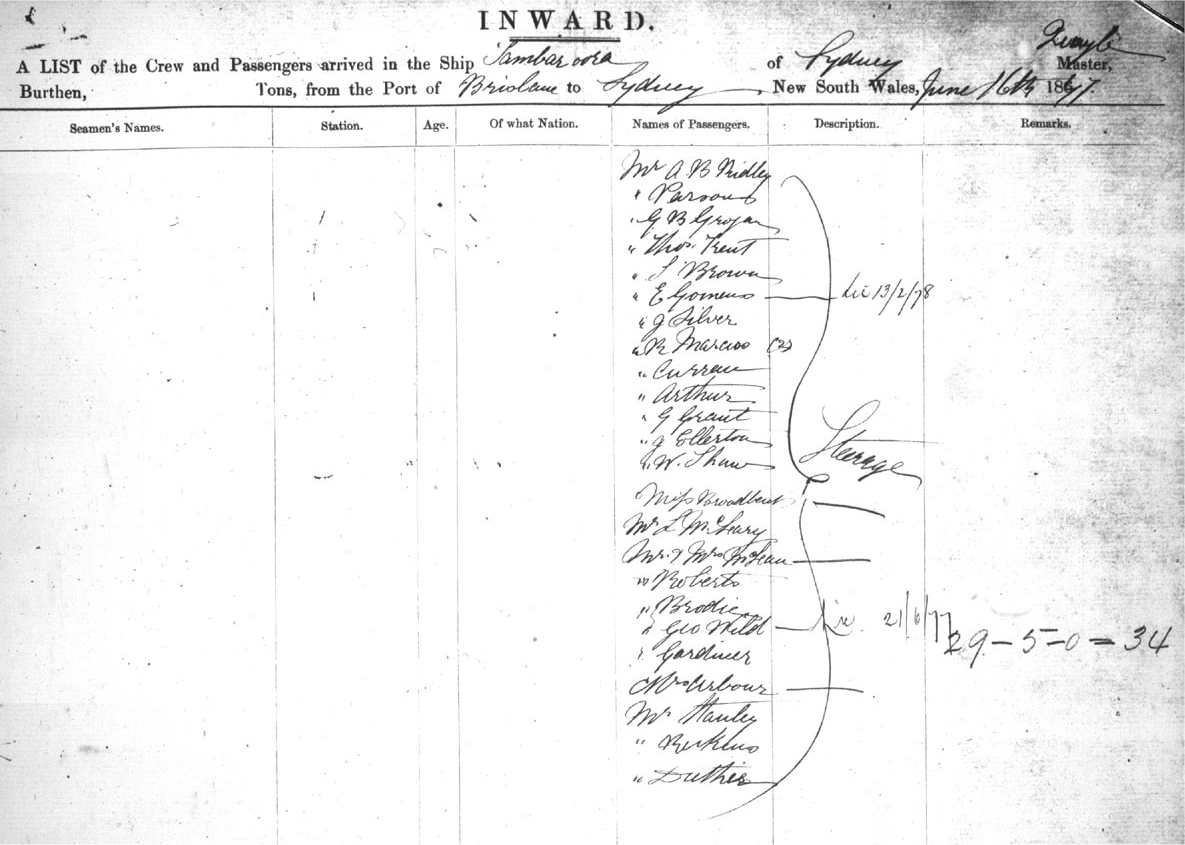 INWARD.
Quayle
A LIST of the Crew and Passengers arrived in the Ship Tambaroora of Sydney Master,
Burthen, Tons, from the Port of Brisbane to Sydney, New South Wales, June 16th 1877.
Seamen's Names. Station. Age. Of what Nation. Names of Passengers. Description. Remarks.
Mr A. B Ridley
" Parsons
" G B Grogan
" Thos. Trent
" S Brown
" E Gomens Lic 13/2/78
" J Silver
" R Marcus (2)
" Curran
" Arthur
" G Grant
" J Ellerton
" W. Shaw
Steerage
Miss Broadbent
Mr L McLeary
Mr. & Mrs McLean
" Roberts
" Brodie
" Geo Wild 21/6/77
29 - 5 - 0 = 34
" Gardiner
Mrs Arbour
Mr Stanley
" Perkins
" Duthie